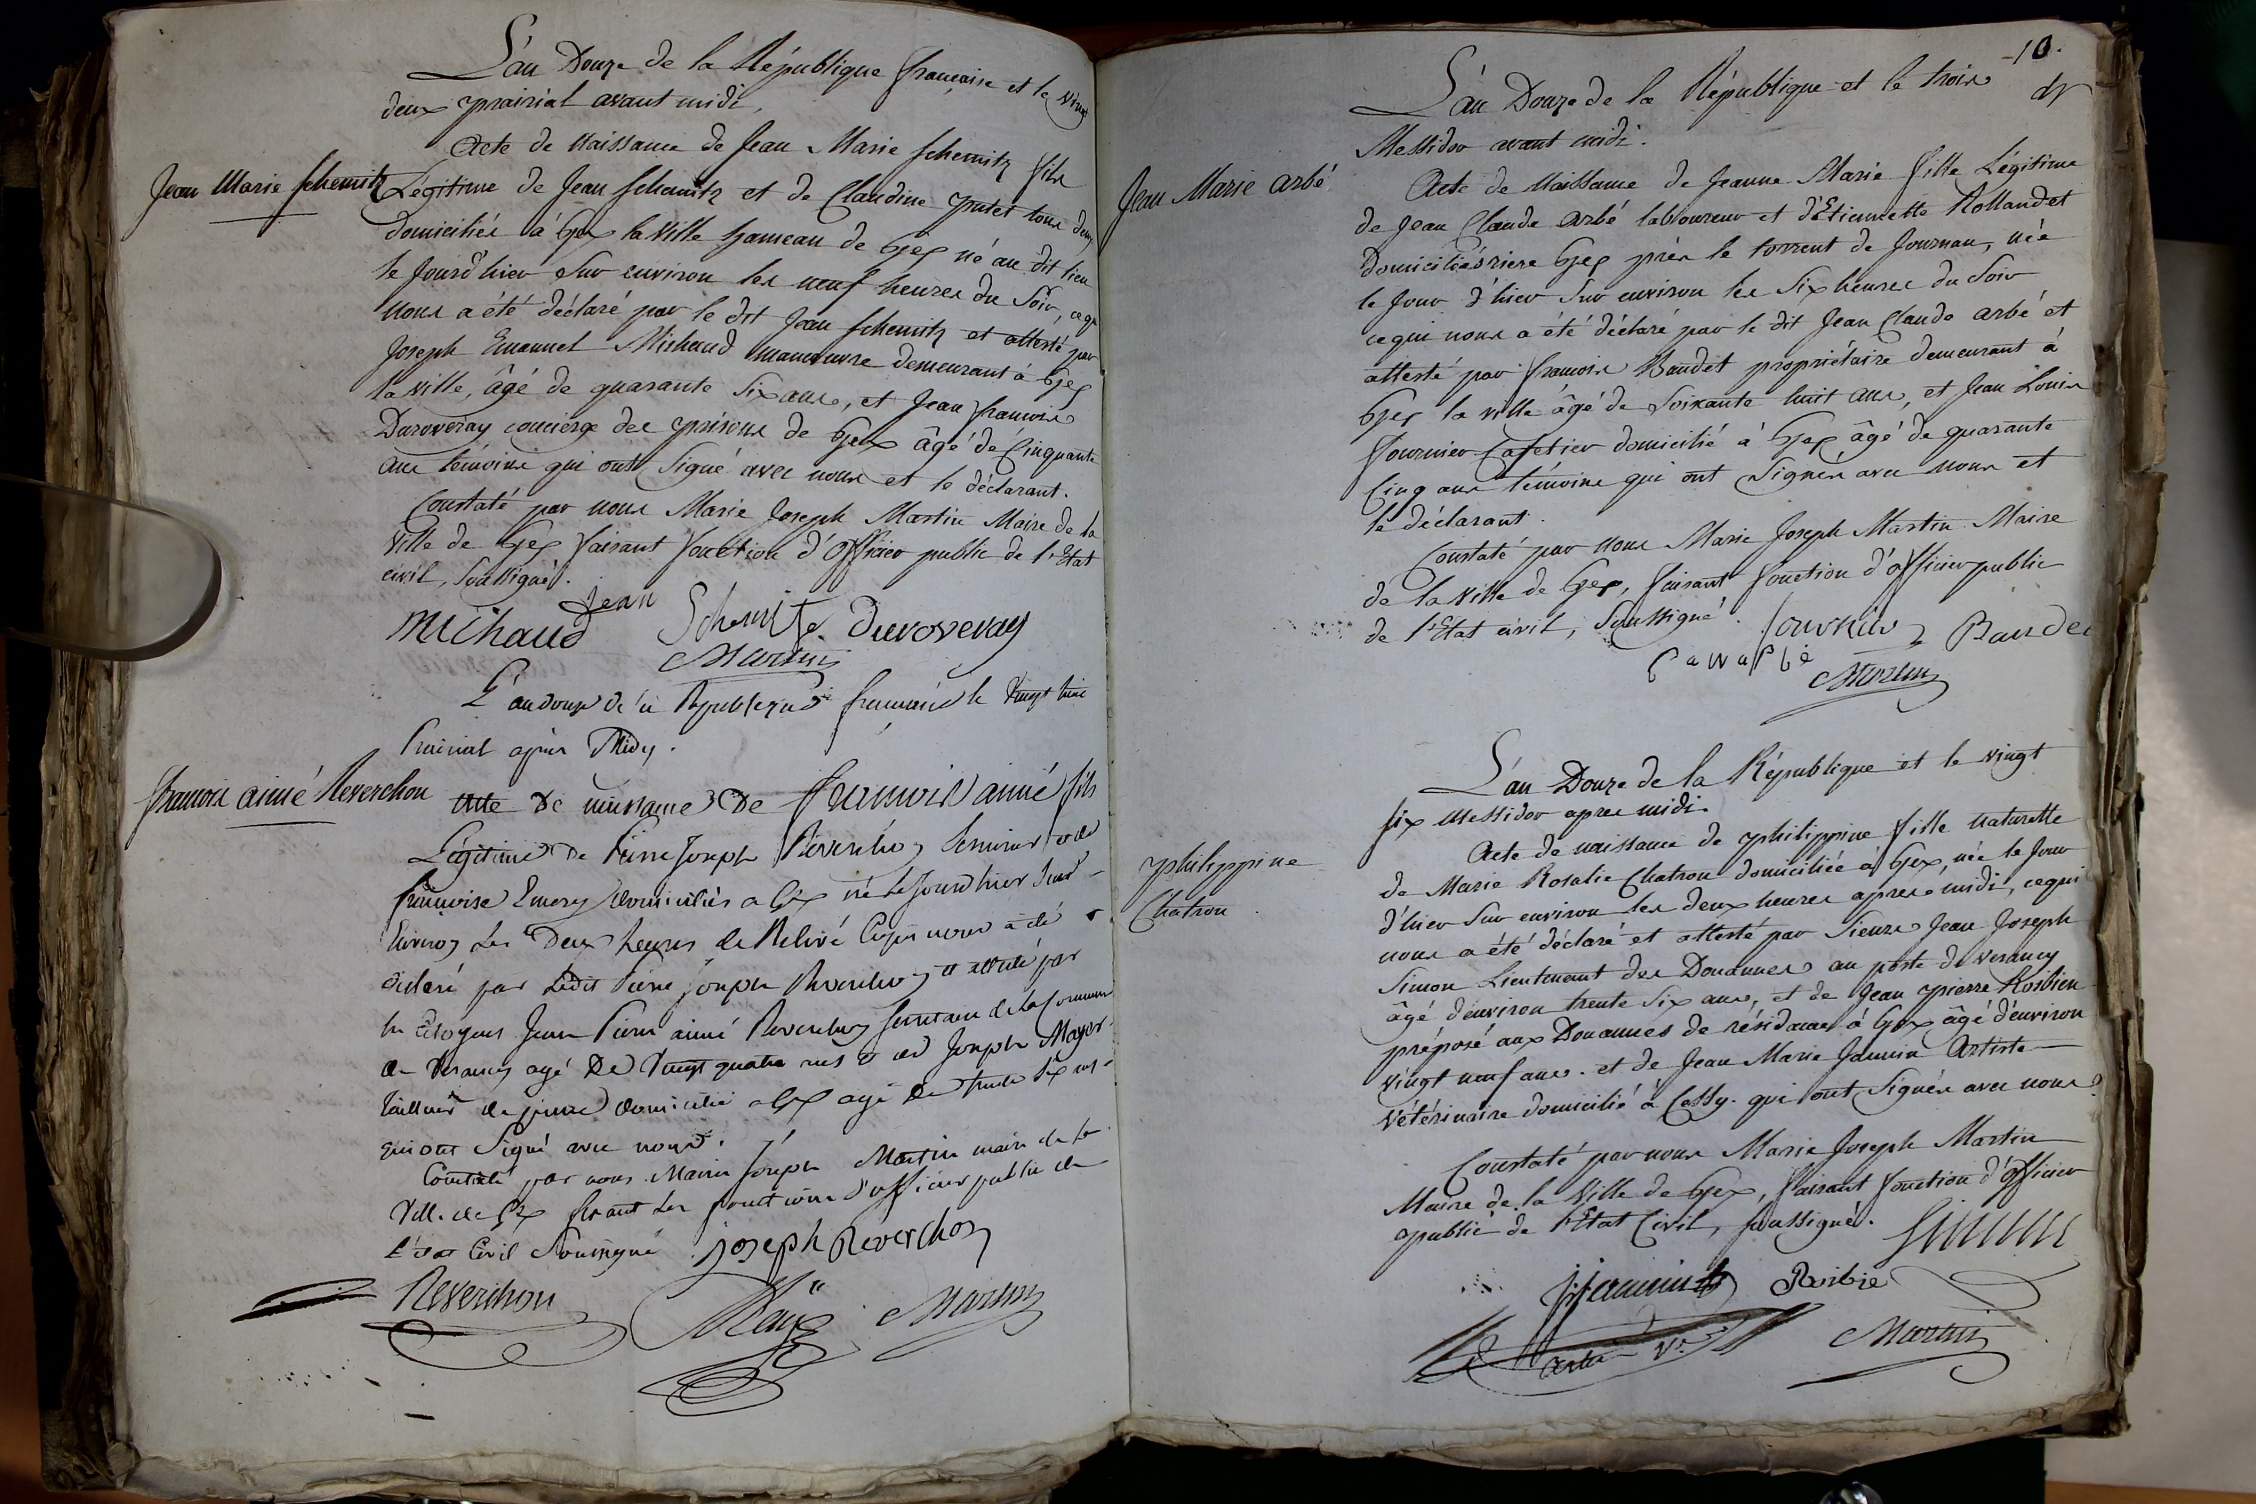 L'an Douze de la République française et le vingt
deux prairial avant midi,
Jean Marie Schemitz
Acte de Naissance de Jean Marie Schemitz fils
Légitime de Jean Schemitz et de Claudine putet tous deux
domiciliés à Gex la Ville hameau de Gex né au dit lieu
le Jourd'hier Sur environ les neuf heures du Soir, ce qui
nous a été déclaré par le dit Jean Schemitz et attesté par
Joseph Emanuel Michaud manœuvre demeurant à Gex
la ville, âgé de quarante Six ans, et Jean françois
Duroveray concierge des prisons de Gex âgé de Cinquante
ans témoins qui ont Signé avec nous et le déclarant.
Constaté par nous Marie Joseph Martin Maire de la
Ville de Gex faisant fonction d'officier public de l'Etat
civil, Soussigné.
Michaud Jean Schemitz Duroveray
Martin
L'an douze de la République française le Vingt huit
Prairial après Midy.
françois aimé Reverchon
Acte de naissance de françois aimé fils
Légitime de Pierre Joseph Reverchon et de
françoise Emery domiciliés a Gex né le Jourd'hier Sur
Environ les Deux heures de Relevé Ce qui nous a été
déclaré par Ledit Pierre Joseph Reverchon et attesté par
les Citoyens Jean Pierre aimé Reverchon Secretaire de la Commune
de Versoncy agé De Vingt quatre ans et de Joseph Mayer
tailleur de pierre domicilié a Gex agé de trente Six ans
qui ont Signé avec nous.
Constaté par nous Marie Joseph Martin maire de la
Ville de Gex fesant les fonctions d'officier public de
l'état Civil Soussigné. joseph Reverchon
Reverchon Martin
10.
L'an Douze de la République et le trois
Messidor avant midi.
Jean Marie arbé
Acte de Naissance de Jeanne Marie fille Légitime
de Jean Claude arbé laboureur et d'Etiennette Rollandet
Domiciliés riere Gex près le torrent de Journan, née
le Jour d'hier Sur environ les Six heures du Soir
ce qui nous a été déclaré par le dit Jean Claude arbé et
attesté par françois Baudet propriétaire demeurant à
Gex la ville âgé de Soixante huit ans, et Jean Louis
fournier Cafetier domicilié à Gex âgé de quarante
Cinq ans témoins qui ont Signés avec nous et
le déclarant.
Constaté par nous Marie Joseph Martin Maire
de la Ville de Gex, faisant fonction d'officier public
de l'Etat civil, Soussigné. fournier Baudet
Martin
L'an Douze de la République et le vingt
Six Messidor apres midi.
philippine
Chatron
Acte de naissance de philippine fille naturelle
de Marie Rosalie Chatron domiciliée à Gex, née le Jour
d'hier Sur environ les deux heures apres midi, ce qui
nous a été déclaré et attesté par Sieurs Jean Joseph
Simon Lieutenant des Douannes au poste de Versoncy
âgé d'environ trente Six ans, et de Jean pierre Rosbien
préposé aux Douannes de résidance à Gex âgé d'environ
vingt neuf ans. et de Jean Marie Jannin Artiste
Vétérinaire domicilié à Cessy. qui ont Signés avec nous
Constaté par nous Marie Joseph Martin
Maire de la Ville de Gex, faisant fonction d'officier
public de l'Etat Civil, soussigné. Simon
Martin